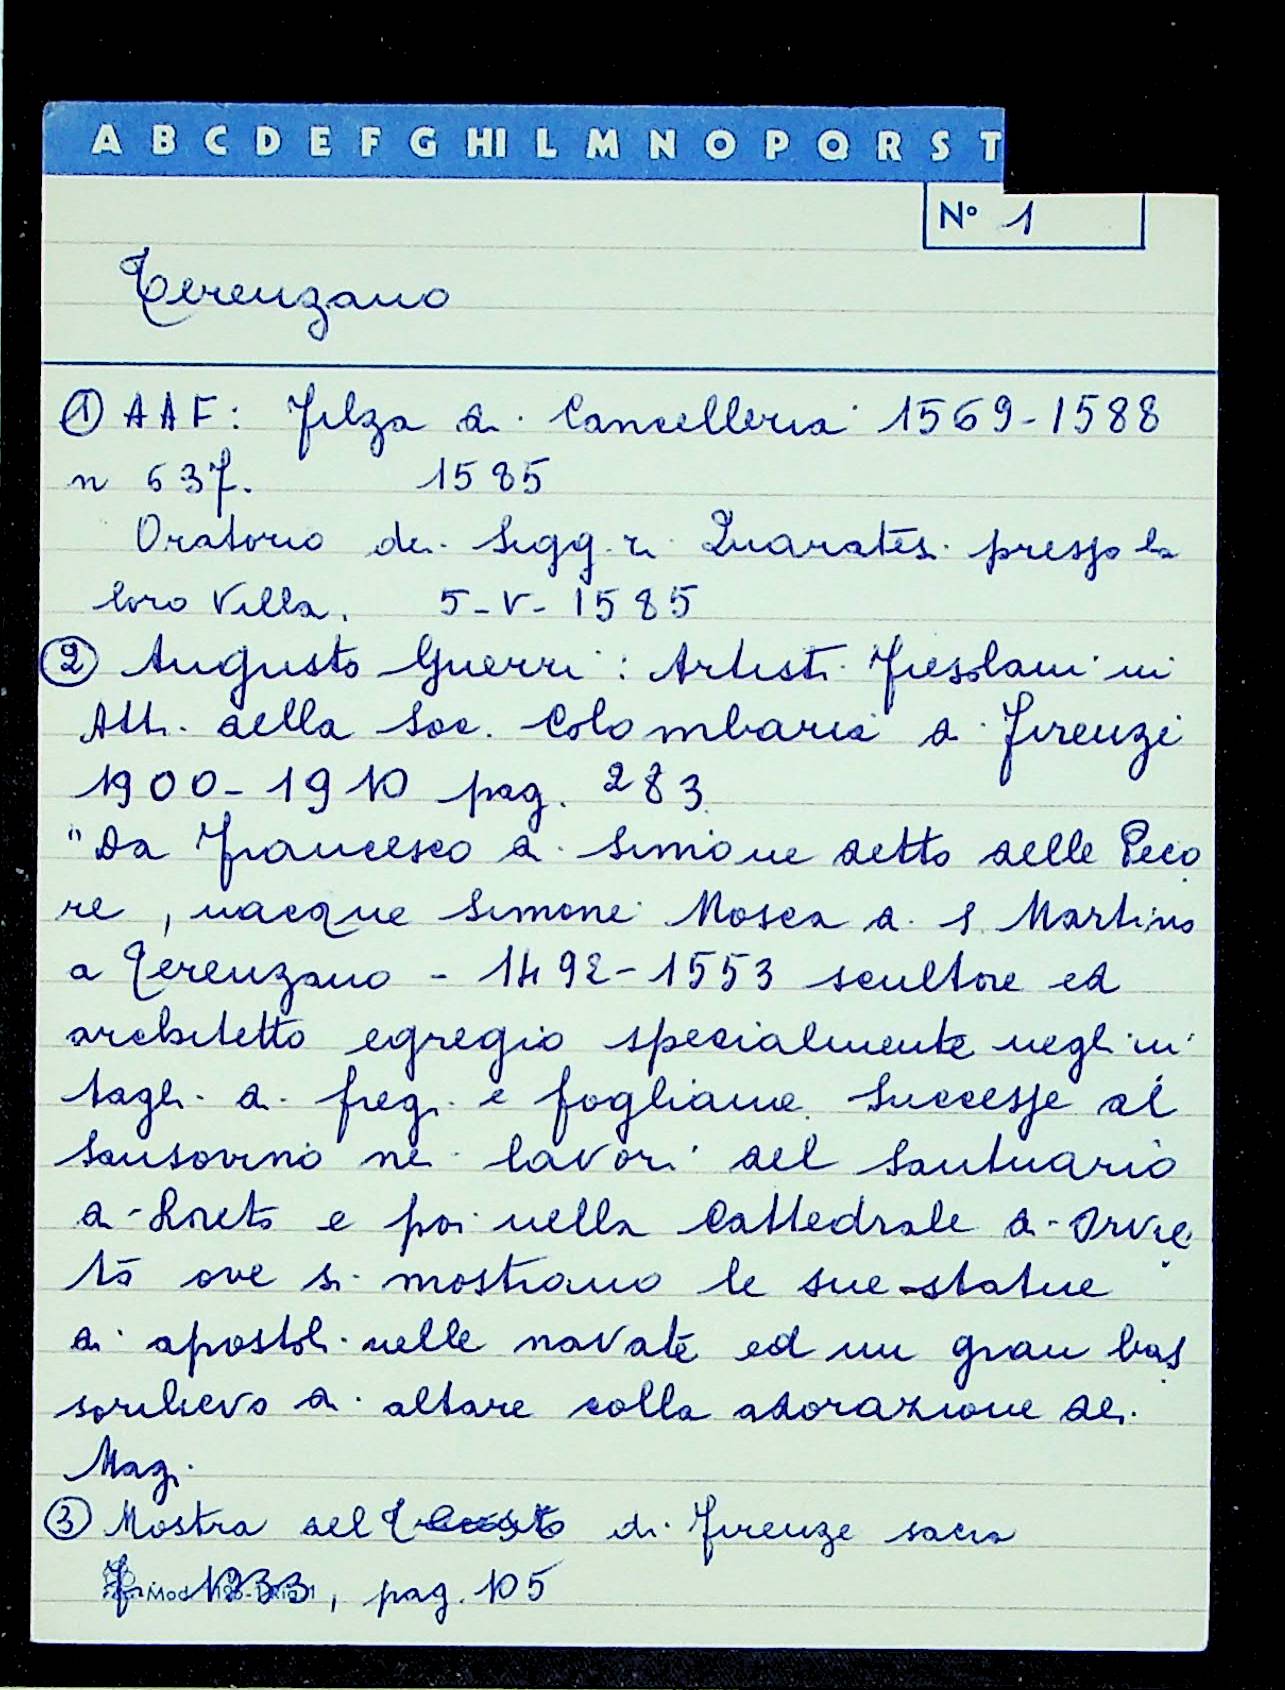 A B C D E F G HI L M N O P Q R S T
Nº 1
Terenzano
① AAF: Filza di Cancelleria 1569-1588
n 637. 1585
Oratorio dei Sigg.ri Quaratesi presso la
loro Villa. 5-V-1585
② Augusto Guerri: Artisti Fiesolani in
Atti della Soc. Colombaria di Firenze
1900-1910 pag. 283
"Da Francesco di Simone detto delle Peco
re, nacque Simone Mosca a S. Martino
a Terenzano - 1492-1553 scultore ed
architetto egregio specialmente negli in
tagli di fregi e fogliane. Successe al
Sansovino nei lavori del Santuario
di Loreto e poi nella Cattedrale di Orvie
to ove si mostrano le sue statue
di apostoli nelle navate ed un gran bas
sorilievo di altare colla adorazione dei
Magi.
③ Mostra del di Firenze sacra
Fi 1933, pag. 105